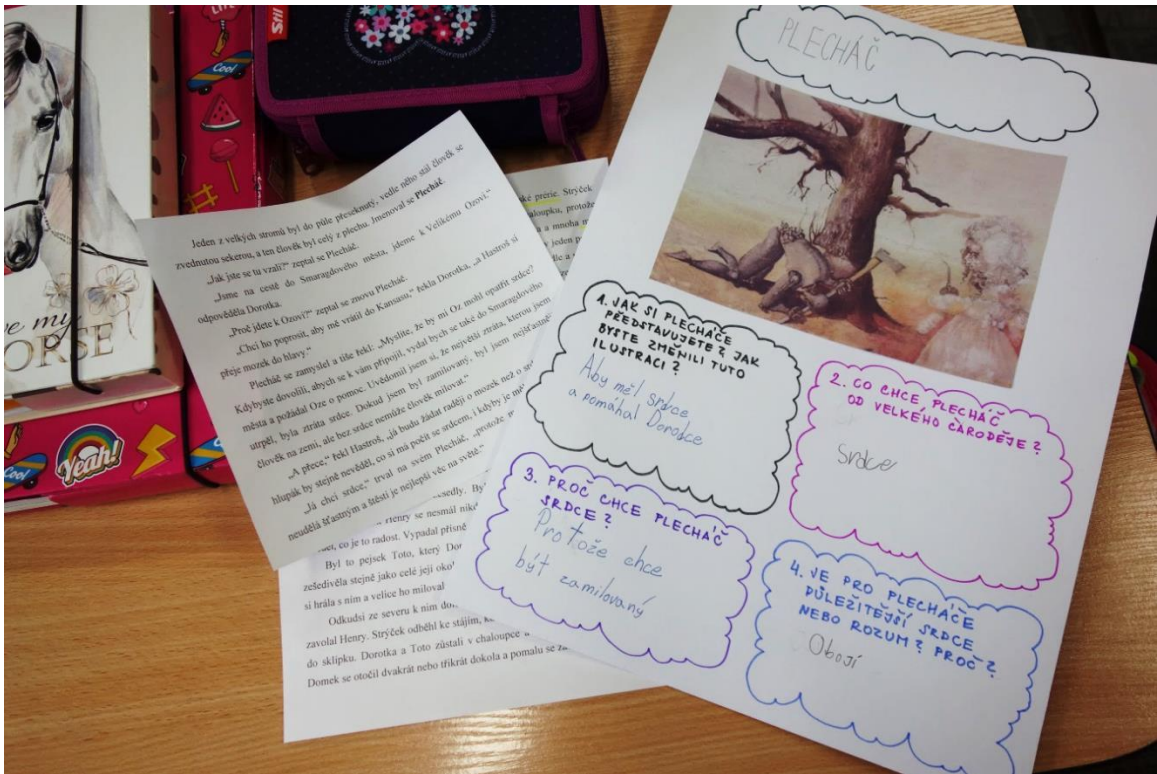 LIFE
Cool
Stil
ve my
ORSE
Cool
Yeah!
Jeden z velkých stromů byl do půle přeseknutý, vedle něho stál člověk se
zvednutou sekerou, a ten člověk byl celý z plechu. Jmenoval se Plecháč.
„Jak jste se tu vzali?“ zeptal se Plecháč.
„Jsme na cestě do Smaragdového města, jdeme k Velikému Ozovi,“
odpověděla Dorotka.
„Proč jdete k Ozovi?“ zeptal se znovu Plecháč.
„Chci ho poprosit, aby mě vrátil do Kansasu,“ řekla Dorotka, „a Hastroš si
přeje mozek do hlavy.“
Plecháč se zamyslel a tiše řekl: „Myslíte, že by mi Oz mohl opatřit srdce?
Kdybyste dovolili, abych se k vám připojil, vydal bych se také do Smaragdového
města a požádal Oze o pomoc. Uvědomil jsem si, že největší ztráta, kterou jsem
utrpěl, byla ztráta srdce. Dokud jsem byl zamilovaný, byl jsem nejšťastně
člověk na zemi, ale bez srdce nemůže člověk milovat.“
„A přece,“ řekl Hastroš, „já budu žádat raději o mozek než o sr
hlupák by stejně nevěděl, co si má počít se srdcem, i kdyby je mě
„Já chci srdce,“ trval na svém Plecháč, „protože m
neudělá šťastným a štěstí je nejlepší věc na světě.“
ké prérie. Strýček
aloupku, protože
a a mnoha
jeden p
dle a
sedly. By
Henry se nesmál nik
co je to radost. Vypadal přísně
Byl to pejsek Toto, který Dor
zešedivěla stejně jako celé její oko
si hrála s ním a velice ho miloval
Odkudsi ze severu k nim do
zavolal Henry. Strýček odběhl ke stájím, k
do sklípku. Dorotka a Toto zůstali v chaloupce
Domek se otočil dvakrát nebo třikrát dokola a pomalu se z
PLECHÁČ
1. JAK SI PLECHÁČE
PŘEDSTAVUJETE? JAK
BYSTE ZMĚNILI TUTO
ILUSTRACI?
Aby měl srdce
a pomáhal Dorodce
2. CO CHCE PLECHÁČ
OD VELKÉHO ČARODĚJE?
Srdce
3. PROČ CHCE PLECHÁČ
SRDCE?
Protože chce
být zamilovaný
4. JE PRO PLECHÁČE
DŮLEŽITĚJŠÍ SRDCE
NEBO ROZUM? PROČ?
Obojí